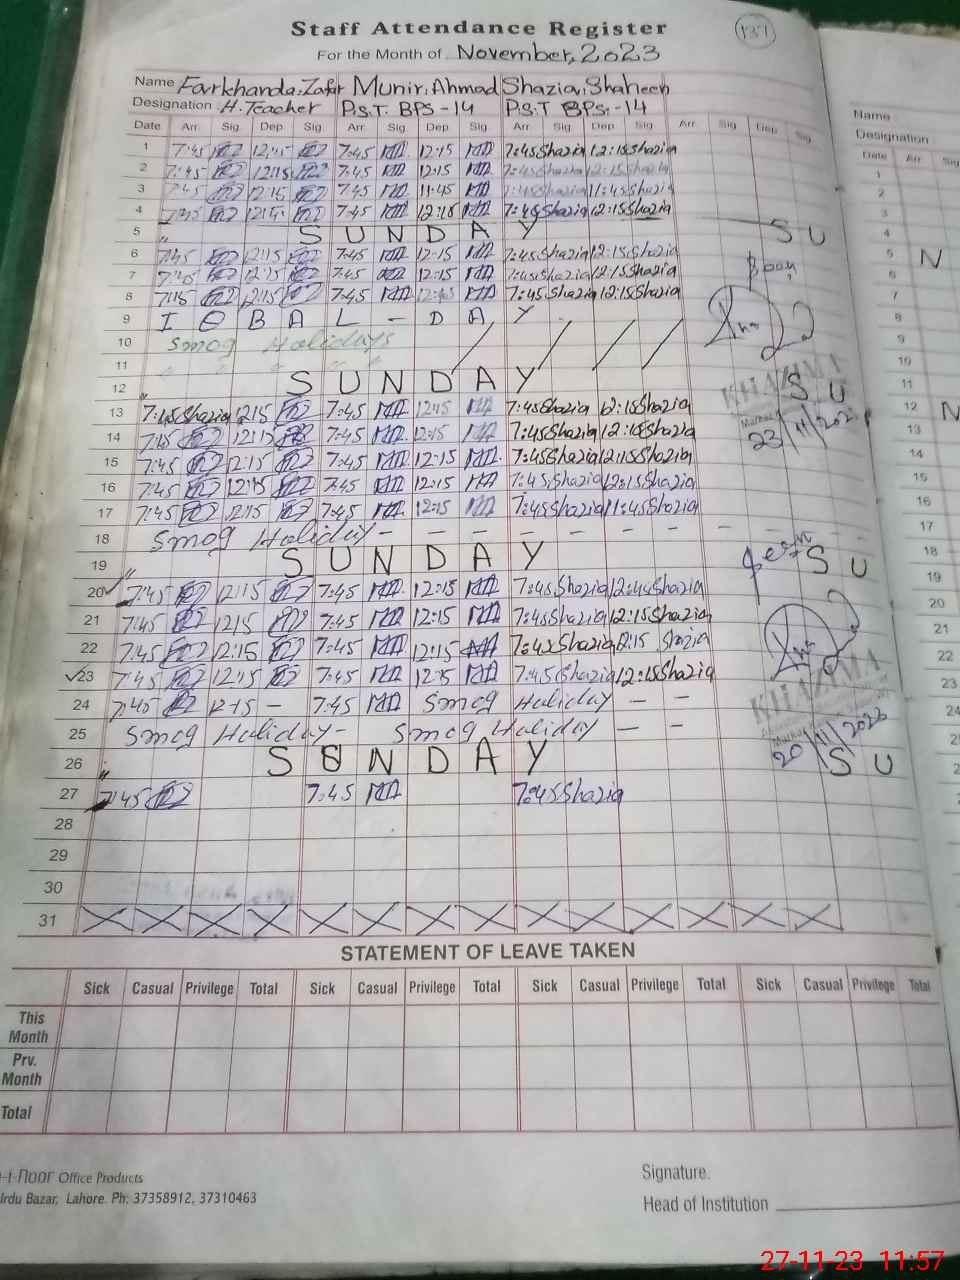 Staff Attendance Register
137
For the Month of November, 2023
Name Farkhanda Zafar Munir Ahmad Shazia Shaheen
Designation H. Teacher P.S.T. BPS-14 P.S.T BPS-14
Date Arr. Sig. Dep Sig. Arr. Sig. Dep. Sig. Arr Sig Dep Sig Arr. Sig. Dep Sig.
1 7:45 12:15 7:45 12:15 7:45 Shazia 12:15 Shazia
2 7:45 12:15 7:45 12:15 7:45 Shazia 12:15 Shazia
3 7:45 12:15 7:45 11:45 7:45 Shazia 11:45 Shazia
4 7:45 7:45 12:15 7:45 Shazia 12:15 Shazia
5 SUNDAY SU
6 7:45 12:15 7:45 12:15 7:45 Shazia 12:15 Shazia
7 7:45 12:15 7:45 12:15 7:45 Shazia 12:15 Shazia
8 12:15 7:45 7:45 Shazia 12:15 Shazia
9 IQBAL - DAY
10 Smog Holidays
11 " " "
12 SUNDAY SU
KHAZIMA
23/11/2023
13 7:45 Shazia 12:15 7:45 12:15 7:45 Shazia 12:15 Shazia
14 7:45 12:15 7:45 12:15 7:45 Shazia 12:15 Shazia
15 7:45 12:15 7:45 12:15 7:45 Shazia 12:15 Shazia
16 7:45 12:15 7:45 12:15 7:45 Shazia 12:15 Shazia
17 7:45 12:15 7:45 12:15 7:45 Shazia 11:45 Shazia
18 Smog Holiday - - - - - - - -
19 SUNDAY SU
20 7:45 12:15 7:45 12:15 7:45 Shazia 12:45 Shazia
21 7:45 12:15 7:45 12:15 7:45 Shazia 12:15 Shazia
22 7:45 12:15 7:45 12:15 7:45 Shazia 12:15 Shazia
23 7:45 12:15 7:45 12:15 7:45 Shazia 12:15 Shazia
24 12:15 - 7:45 Smog Holiday - -
KHAZIMA
20/11/2023
25 Smog Holiday - Smog Holiday - -
26 SUNDAY SU
27 7:45 7:45 7:45 Shazia
28
29
30
31
STATEMENT OF LEAVE TAKEN
Sick Casual Privilege Total Sick Casual Privilege Total Sick Casual Privilege Total Sick Casual Privilege Total
This Month
Prv. Month
Total
Office Products
Bazar, Lahore. Ph: 37358912, 37310463
Signature.
Head of Institution
Name
Designation
Date Arr. Sig
1
2
3
4
5 N
6
7
8
9
10
11
12 N
13
14
15
16
17
18
19
20
21
22
23
24
27-11-23 11:57